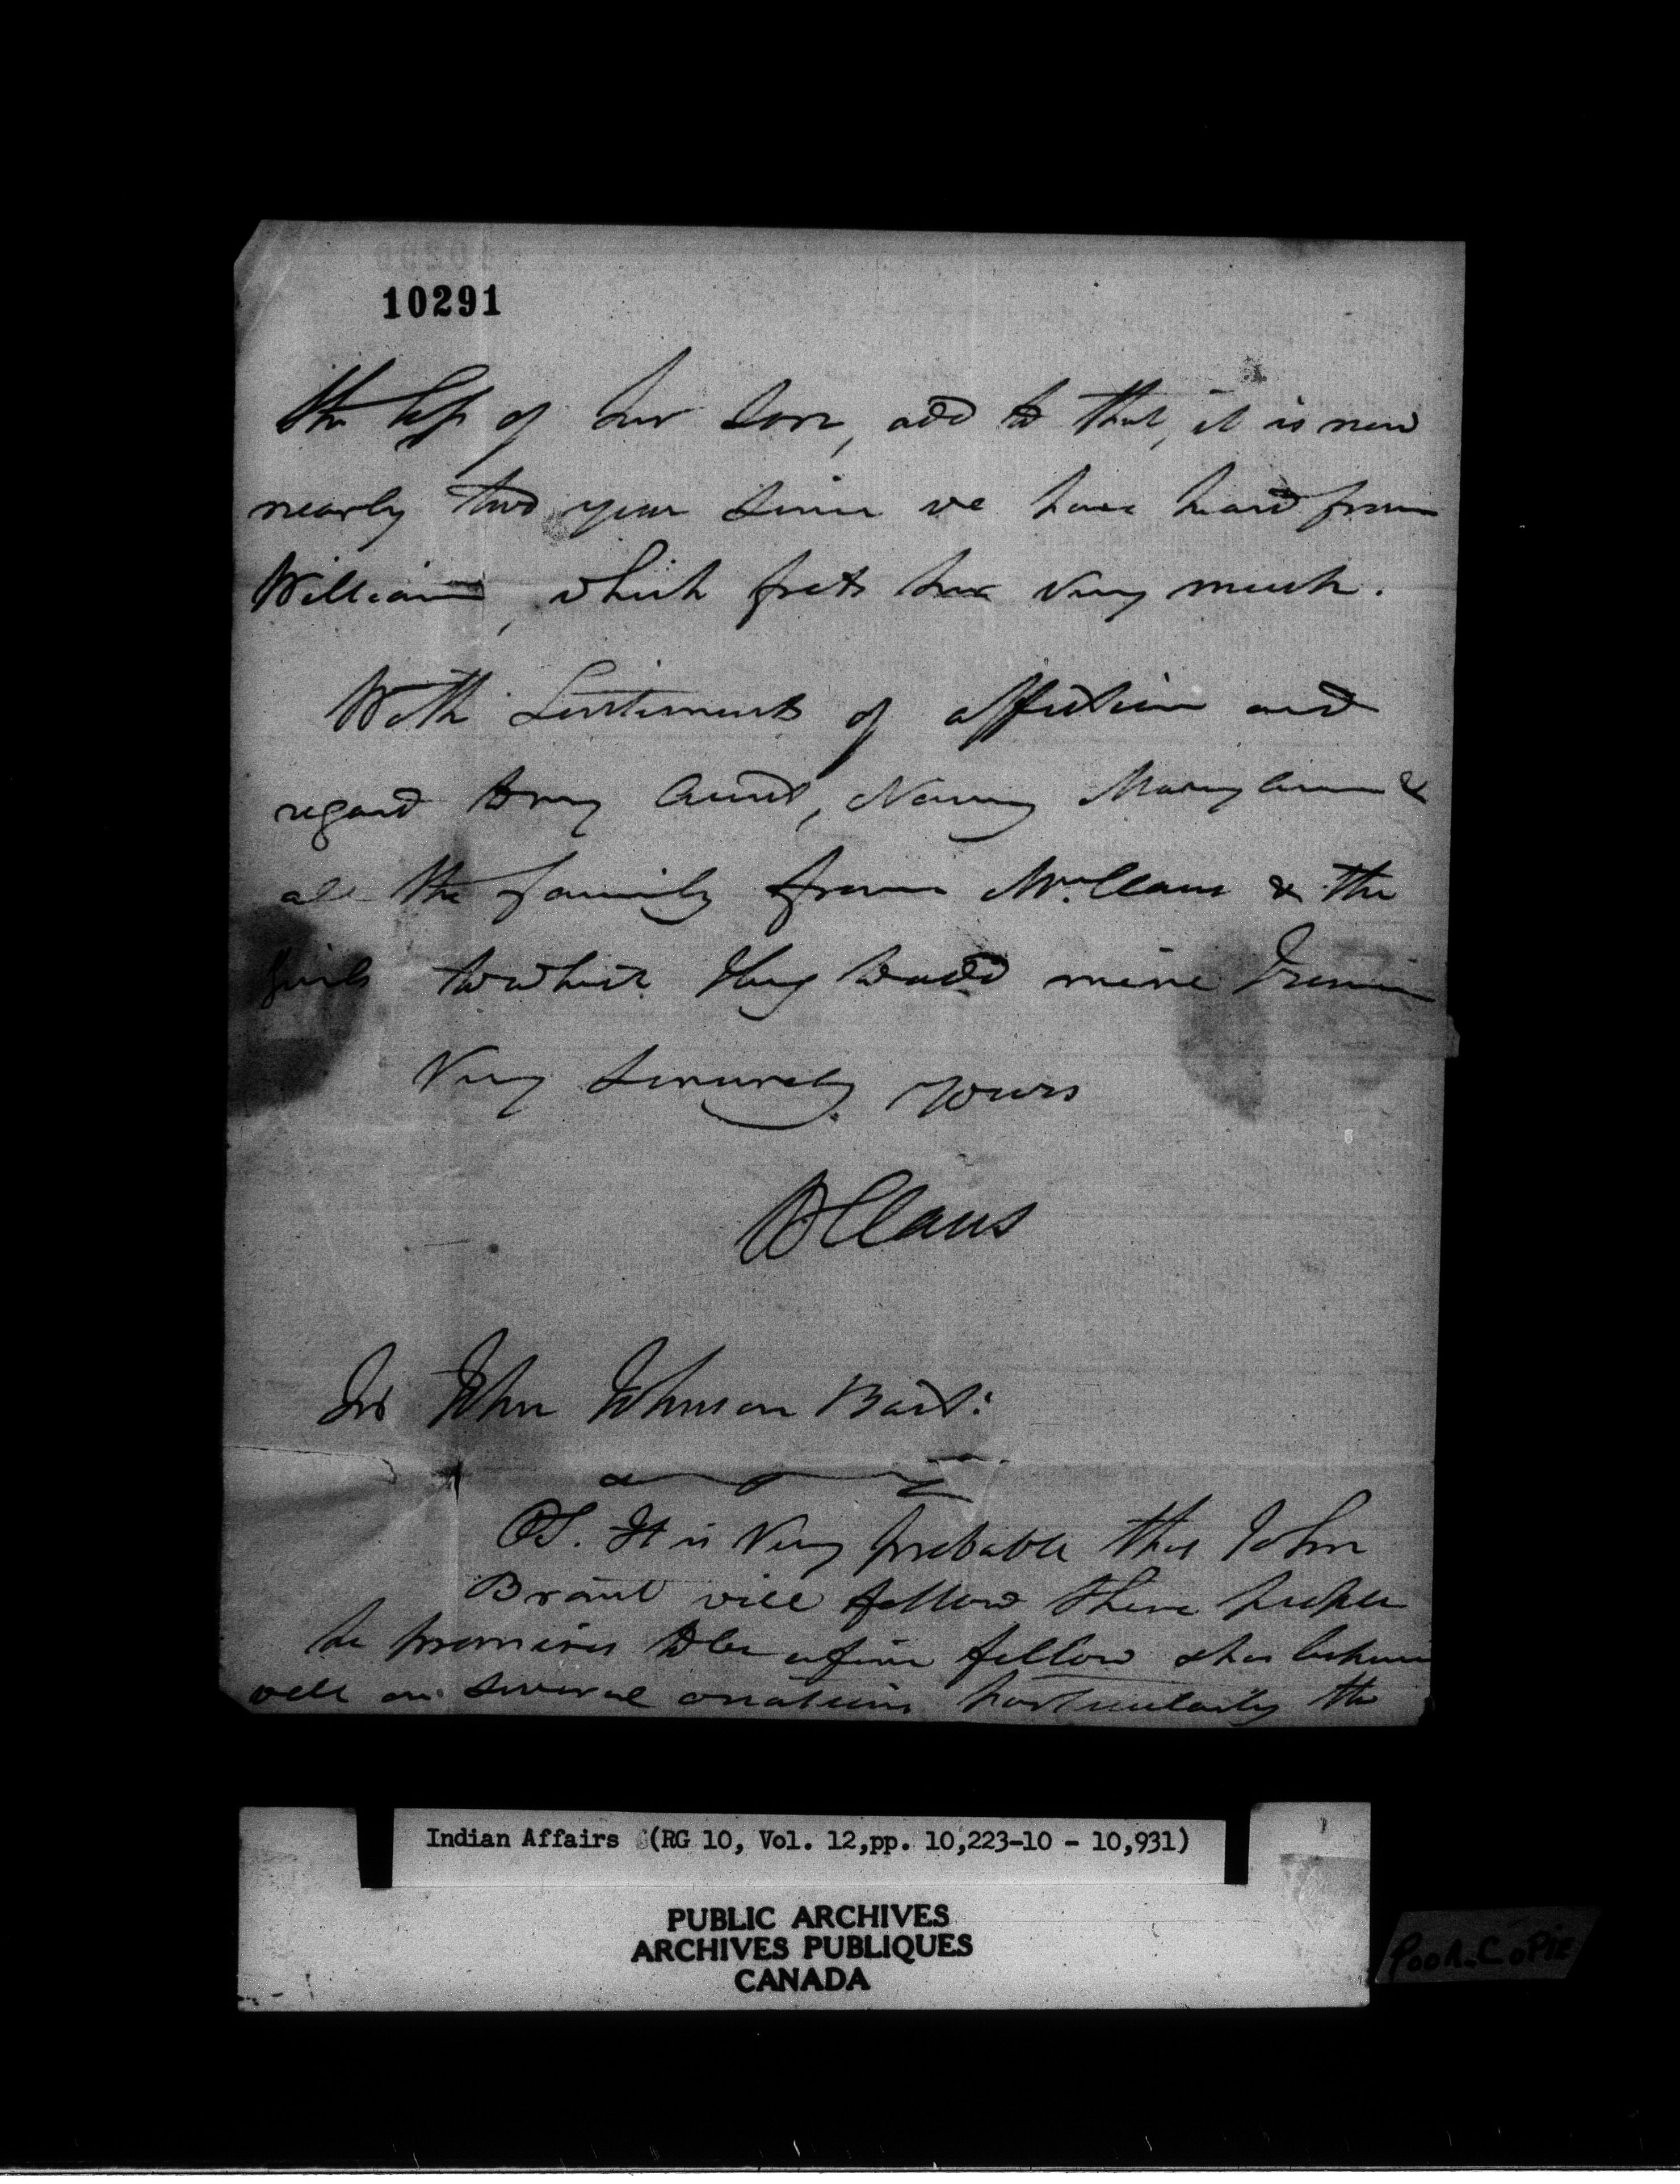 10291
the loss of her Son, add to that, it is now
nearly two year since we have heard from
William, which frets her very much.
With Sentiments of affection and
regard to my Aunt, Nancy Maryann &
all the family from Mrs. Claus & the
Girls to which they would mine I remain
Very Sincerely yours
W Claus
Sir John Johnson Bart:
PS. It is Very probable that John
Brant will follow these people
he promises to be a fine fellow & has behaved
well on several occasions particularly the
Indian Affairs (RG 10, Vol. 12,pp. 10,223-10 - 10,931)
PUBLIC ARCHIVES
ARCHIVES PUBLIQUES
CANADA
POOR COPIE